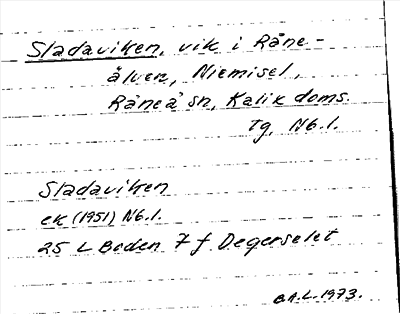 Sladaviken, vik i Råne-
älven, Niemisel,
Råneå sn, Kalix doms.
Tg, Nb.l.
Sladaviken
ek (1951) Nb.l.
25 L Boden 7 f Degerselet
B.A.L. 1973.